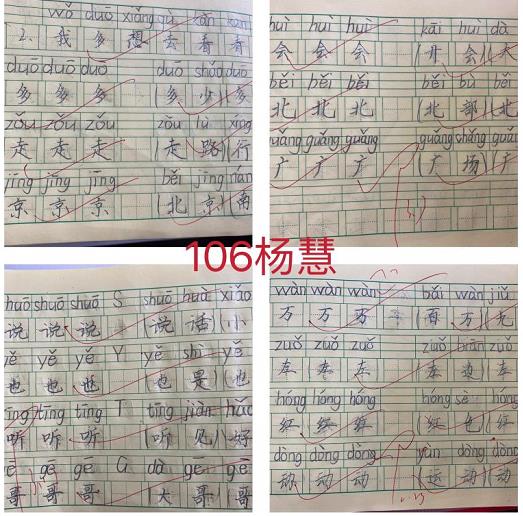 wǒ duō xiǎng qù kàn kan
2. 我 多 想 去 看 看
duō duō duō duō shǎo duō
多 多 多 (多 少)(多
zǒu zǒu zǒu zǒu lù xíng
走 走 走 (走 路)(行
jīng jīng jīng běi jīng nán
京 京 京 (北 京)(南
huì huì huì kāi huì dà
会 会 会 (开 会)(大
běi běi běi běi bù běi
北 北 北 (北 部)(北
guǎng guǎng guǎng guǎng chǎng guǎng
广 广 广 (广 场)(广
106杨慧
shuō shuō shuō S shuō huà xiǎo
说 说 说 (说 话)(小
yě yě yě Y yě shì yě
也 也 也 (也 是)(也
tīng tīng tīng T tīng jiàn hǎo
听 听 听 (听 见)(好
gē gē gē G dà gē gē
哥 哥 哥 (大 哥 哥
wàn wàn wàn bǎi wàn jiǔ
万 万 万 (百 万)(九
zuǒ zuǒ zuǒ zuǒ biān zuǒ
左 左 左 (左 边)(左
hóng hóng hóng hóng sè hóng
红 红 红 (红 色)(红
dòng dòng dòng yùn dòng dòng
动 动 动 (运 动)(动